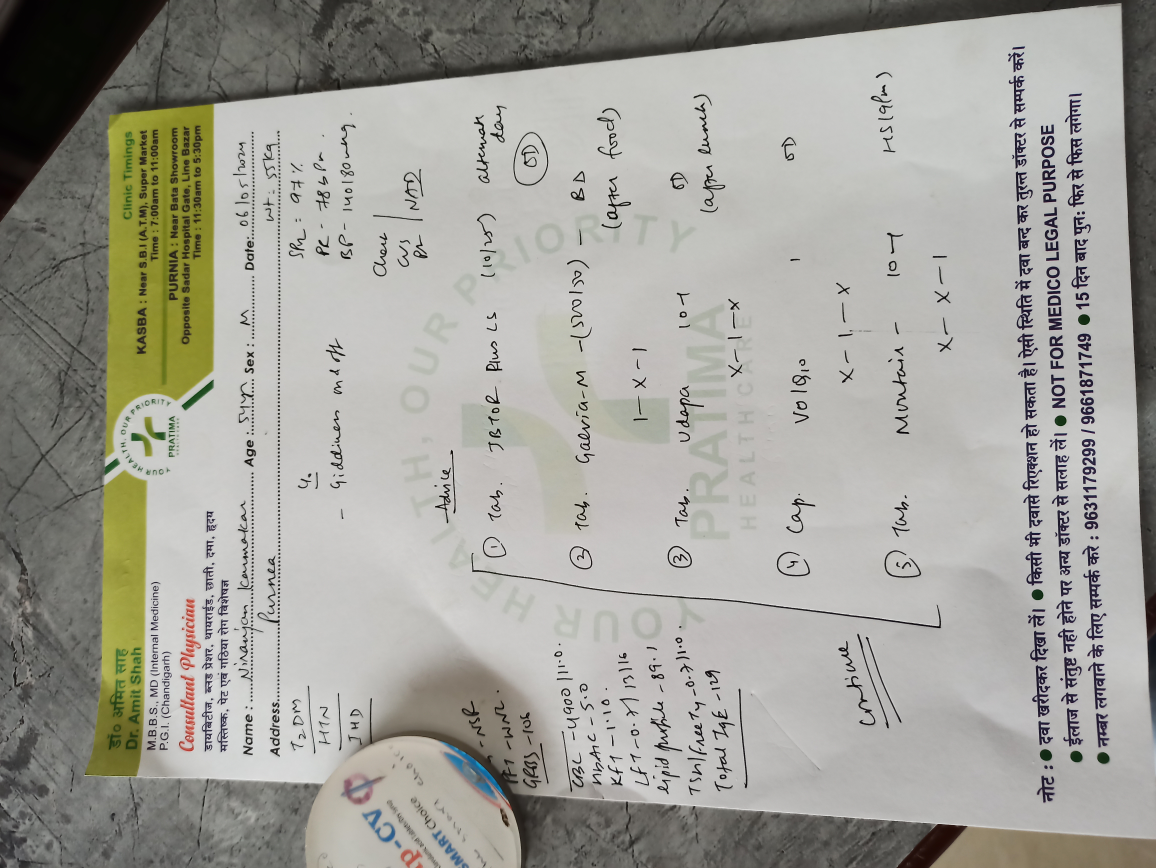 डॉ० अमित साह
Dr. Amit Shah
M.B.B.S., MD (Internal Medicine)
P.G.I. (Chandigarh)
Consultant Physician
डायबिटीज, ब्लड प्रेशर, थायराईड, छाती, दमा, हृदय
मस्तिष्क, पेट एवं गठिया रोग विशेषज्ञ
YOUR HEALTH, OUR PRIORITY
PRATIMA
Clinic Timings
KASBA : Near S.B.I (A.T.M), Super Market
Time : 7:00am to 11:00am
PURNIA : Near Bata Showroom
Opposite Sadar Hospital Gate, Line Bazar
Time : 11:30am to 5:30pm
Name : Niranjan Karmakar Age : 54yr Sex : M Date: 06/05/2024
Address. Purnea wt- 55kg
T2DM
HTN
IHD
- Giddiness on & off
SPO2 : 97%
PR - 78bpm
BP - 140/80mmHg.
Chest
CVS
PA NAD
NSR
WNL
GRBS - 106
CBC - 4900/11.0.
HbA1C - 5.0
KFT - 1.10.
LFT - 0.7/13/16
lipid profile - 89.1
TSH/Free T4 - 0.7/1.0.
Total IgE - 129
Continue
Advice
① Tab. Plus LS (10/25) alternate day
OD
② Tab. Galvia-M - (500/50) - BD
1-x-1 (after food)
③ Tab. Udapa 10-1 OD
x-1-x (after lunch)
④ Cap. Vol 1 OD
x-1-x
⑤ Tab. Muntair - 10-1 HS (9pm)
x-x-1
YOUR HEALTH, OUR PRIORITY
PRATIMA
HEALTH CARE
नोट : ● दवा खरीदकर दिखा लें। ● किसी भी दवासे रिएक्शन हो सकता है। ऐसी स्थिति में दवा बन्द कर तुरन्त डॉक्टर से सम्पर्क करें।
● ईलाज से संतुष्ट नही होने पर अन्य डॉक्टर से सलाह लें। ● NOT FOR MEDICO LEGAL PURPOSE
● नम्बर लगवाने के लिए सम्पर्क करे : 9631179299 / 9661871749 ● 15 दिन बाद पुनः फिर से फिस लगेगा।
p-CV
SMART Choice